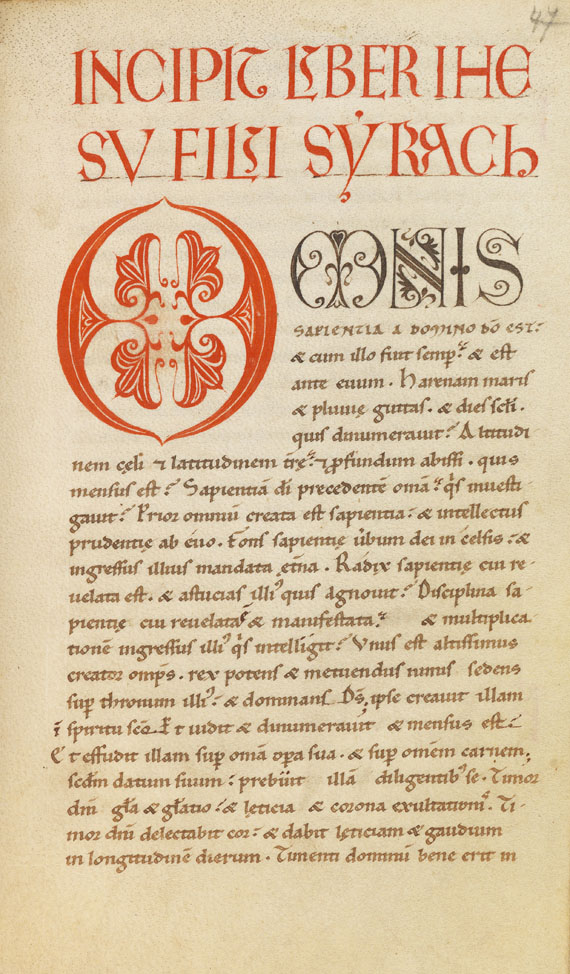 47
INCIPIT LIBER IHE
SV FILII SYRACh
OMNIS
SAPIENTIA A DOMINO DŌ EST:
& cum illo fuit semp̄. & est
ante euum. harenam maris
& pluuię guttas. & dies scłi.
quis dinumerauit? Altitudi
nem cęli & latitudinem trę. & p̱fundum abissi. quis
mensus est? Sapientiā dī precedentē omā. q̇s inuesti
gauit? Prior omniū creata est sapientia. & intellectus
prudentię ab ęuo. Fons sapientię ūbum dei in celsis. &
ingressus illius mandata ętna. Radix sapientię cui re-
uelata est. & astucias illiꝰ quis agnouit? Disciplina sa-
pientię cui reuelata & manifestata? & multiplica-
tionē ingressus illiꝰ q̇s intelligit? Vnus est altissimus
creator omp̄s. rex potens & metuendus nimis sedens
sup̄ thronum illiꝰ. & dominans D̄s. ipse creauit illam
ī spiritu scō. Et uidit & dinumerauit & mensus est.
Et effudit illam sup̄ omā op̱a sua. & sup̄ omēm carnem;
scđm datum suum. prebuit illā diligentibꝰ se. Timor
dnī głа & głatio. & lęticia & corona exultationiˢ. Ti-
mor dnī delectabit cor. & dabit lęticiam & gaudium
in longitudinē dierum. Timenti dominū bene erit in